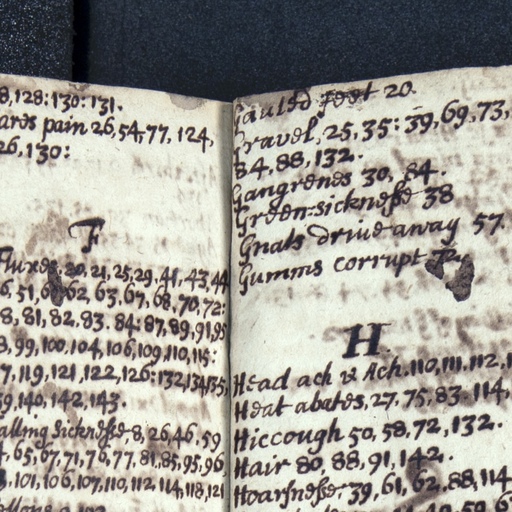 8,128:130:131.
ares pain 26,54,77, 124,
26,130:
F
Fluxes, 20, 21, 25, 29, 41, 43, 44
6, 51, 62, 63, 67, 68, 70, 72:
8, 81, 82, 83. 84: 87, 89, 91, 95
8, 99, 100, 104, 106, 109, 110, 115:
7, 119, 121, 122, 126: 132, 134, 135,
39, 140, 142, 143.
alling sicknesse 8, 26, 46, 59
, 65, 67, 71, 76, 77, 81, 85, 95, 96
, 101, 106, 107, 110, 112, 114, 118, 121
Gauled feet 20.
Gravel, 25, 35: 39, 69, 73,
84, 88, 132.
Gangrenes 30, 84.
Green-sicknesse 38
Gnats drive away 57.
Gumms corrupt
H.
Head ach v Ach. 110, 111. 112, 1
Heat abates, 27, 75, 83. 114,
Hiccough 50, 58, 72, 132.
Hair 80, 88, 91, 142.
Hoarsnesse, 39, 61, 62, 88, 114